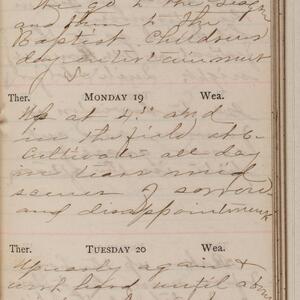 We go to the
and then to the
Baptist Childrens
day entertainment
Ther. MONDAY 19 Wea.
Up at 4.30 and
in the field at 6.
Cultivate all day
in tears mid
scenes of sorrow
and disappointment
Ther. TUESDAY 20 Wea.
Up early again &
work hard until